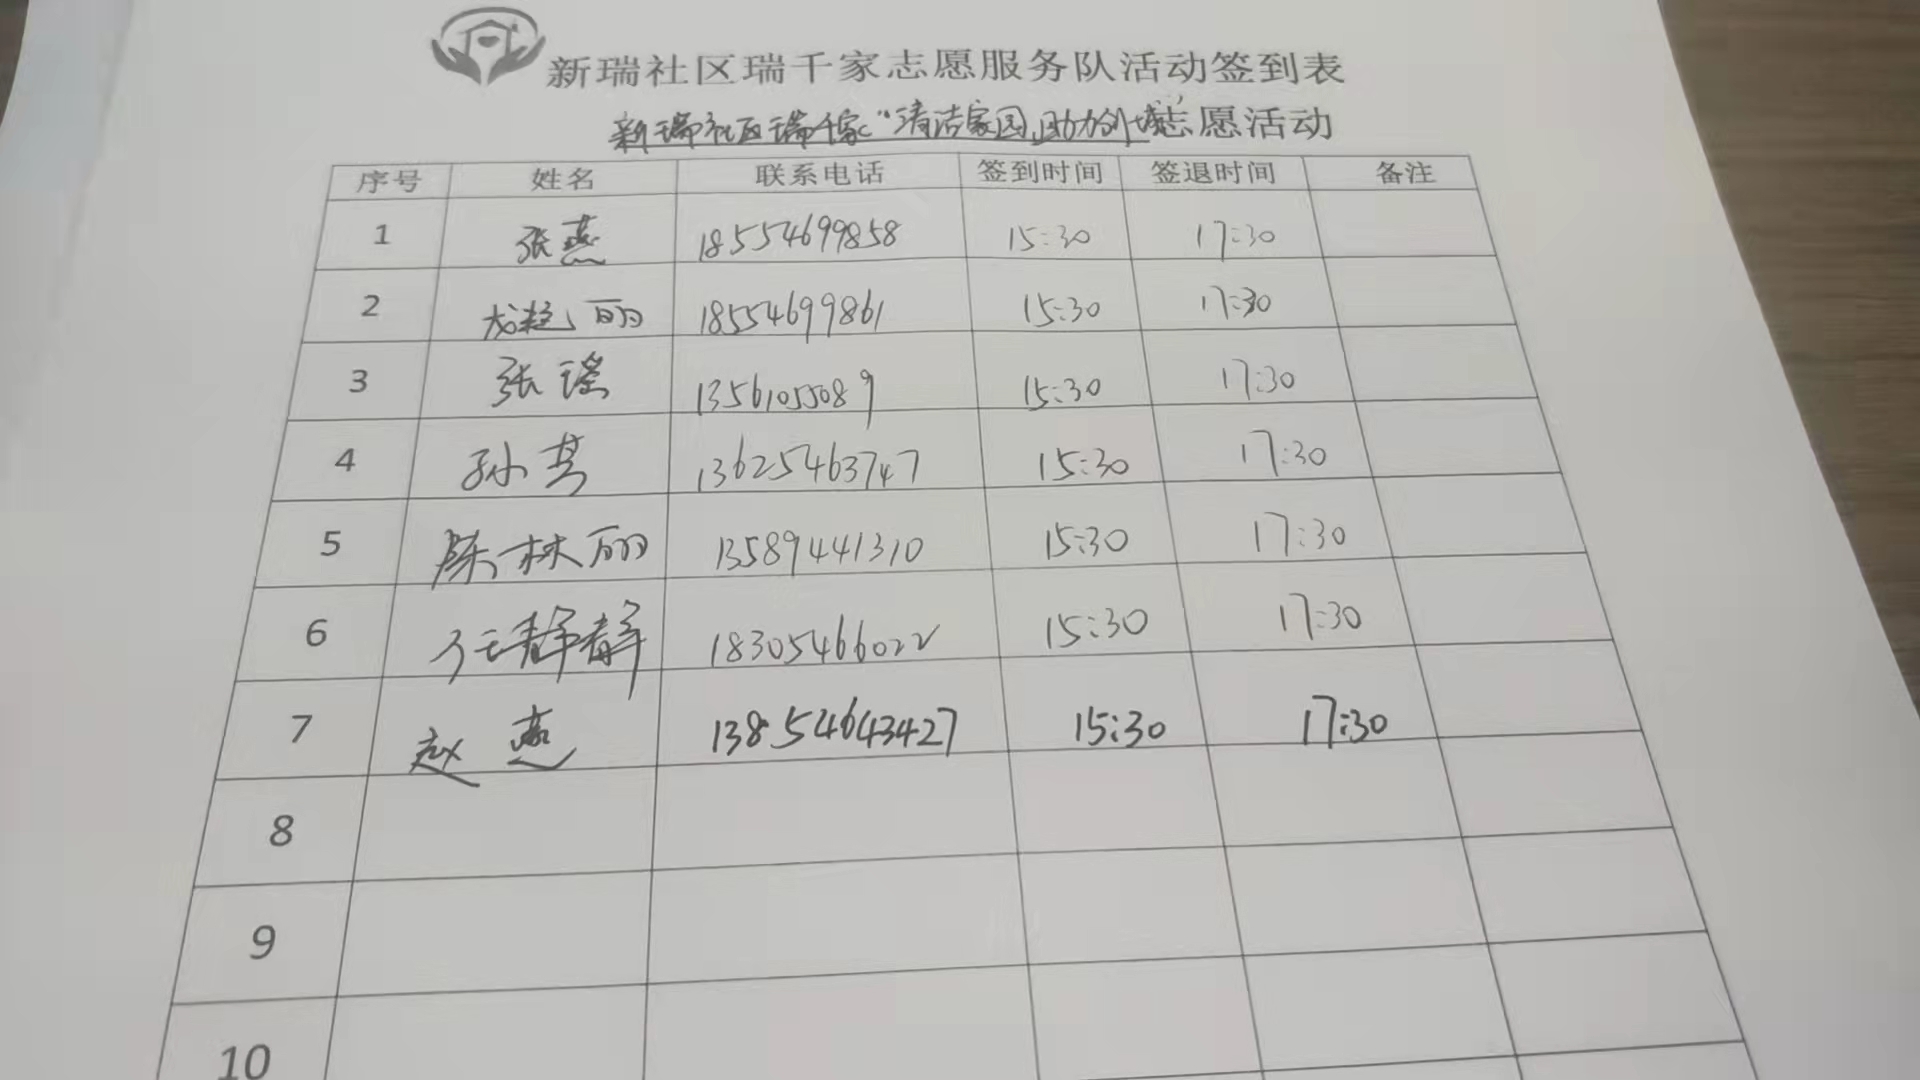 新瑞社区瑞千家志愿服务队活动签到表
新瑞社区瑞千家“清洁家园,助力创城”志愿活动
序号 姓名 联系电话 签到时间 签退时间 备注
1 张燕 18554699858 15:30 17:30
2 丽 18554699861 15:30 17:30
3 张瑶 13561055089 15:30 17:30
4 孙 13625463747 15:30 17:30
5 陈林丽 13589441310 15:30 17:30
6 静静 18305466022 15:30 17:30
7 赵燕 13854643427 15:30 17:30
8
9
10